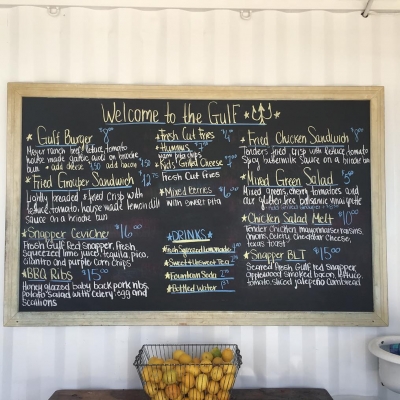 Welcome to the Gulf
Gulf Burger
Meyer ranch beef, lettuce, tomato
house made garlic aioli on brioche
bun add cheese .50 add bacon
Fried Grouper Sandwich
Lightly breaded & fried crisp with
lettuce, tomato, house made lemon dill
on a brioche bun
Snapper Ceviche
Fresh Gulf Red Snapper, fresh
Squeezed lime juice, tequila, pico,
cilantro and purple corn chips
BBQ Ribs $15.00
Honey glazed baby back pork ribs,
potato salad with celery, egg and
scallions
Fresh Cut Fries
Hummus
warm pita chips
Kids Grilled Cheese
Fresh Cut Fries
Mixed Berries
with sweet pita
DRINKS
Fresh Squeezed Lemonade
Sweet & Unsweet Tea
Fountain Soda
Bottled Water
Fried Chicken Sandwich
Tenders fried crisp with lettuce, tomato
Spicy buttermilk sauce on a brioche bun
Mixed Green Salad
Mixed greens, cherry tomatoes and
our gluten free balsamic vinaigrette
Chicken Salad Melt $10.00
Tender Chicken, mayonnaise, raisins,
onions, celery, cheddar cheese,
texas toast
Snapper BLT $15.00
Seared Fresh Gulf red snapper
Applewood smoked bacon, lettuce,
tomato, sliced jalapeño cornbread